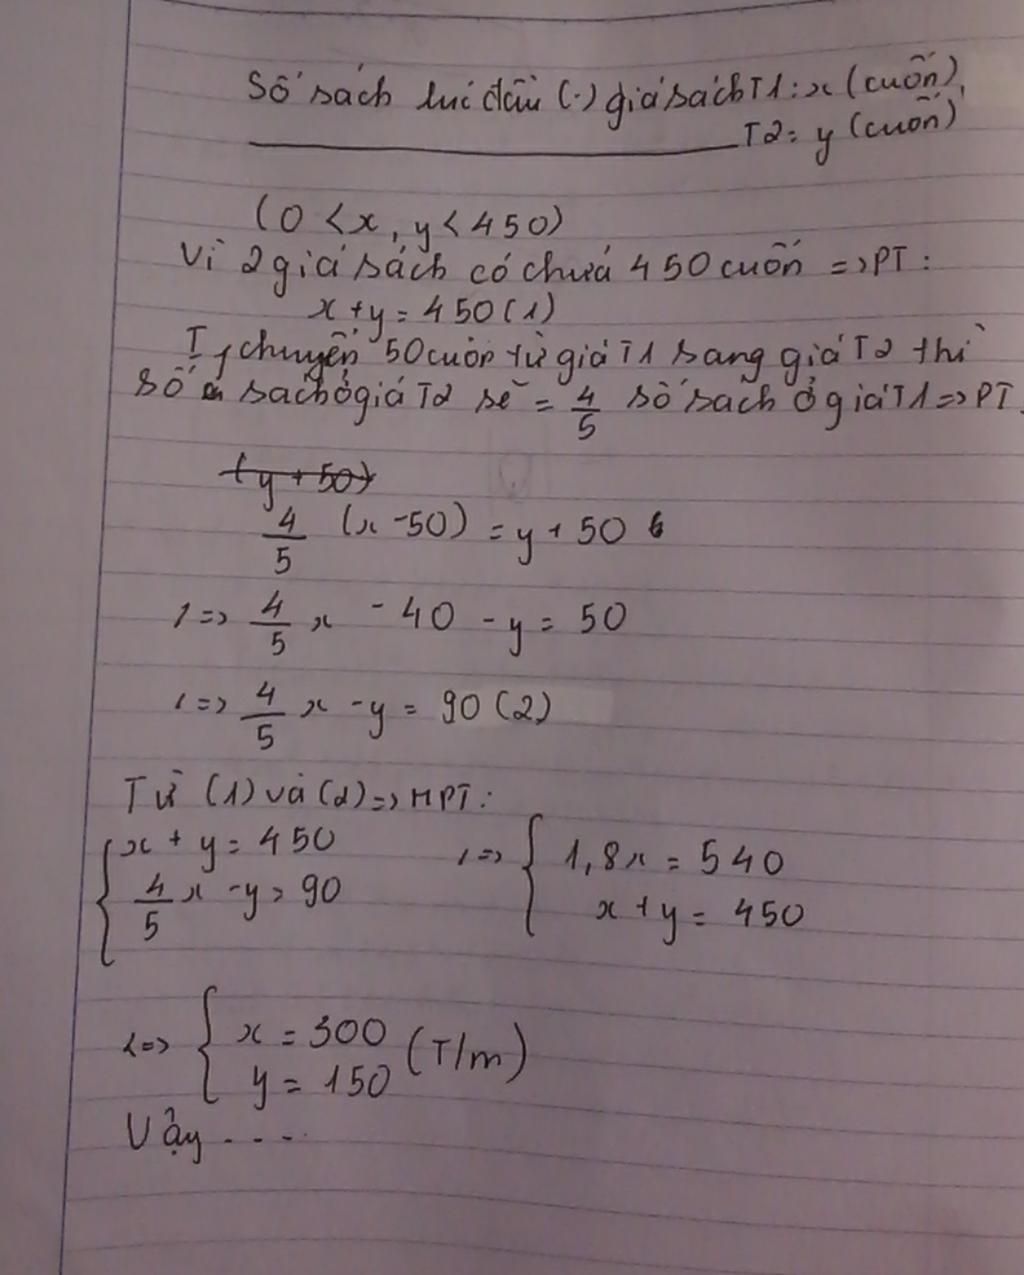 Số sách lúc đầu (.) giá sách T1: x (cuốn),
T2= y (cuốn)
(0 < x, y < 450)
Vì 2 giá sách có chứa 450 cuốn => PT:
x + y = 450 (1)
chuyển 50 cuốn từ giá T1 sang giá T2 thì
số sách ở giá T2 sẽ = 4/5 số sách ở giá T1 => PT
(y + 50)
4/5 (x - 50) = y + 50
<=> 4/5 x - 40 - y = 50
<=> 4/5 x - y = 90 (2)
Từ (1) và (2) => HPT:
{ x + y = 450 <=> { 1,8x = 540
4/5 x - y = 90 x + y = 450
<=> { x = 300 (T/m)
y = 150
Vậy ....